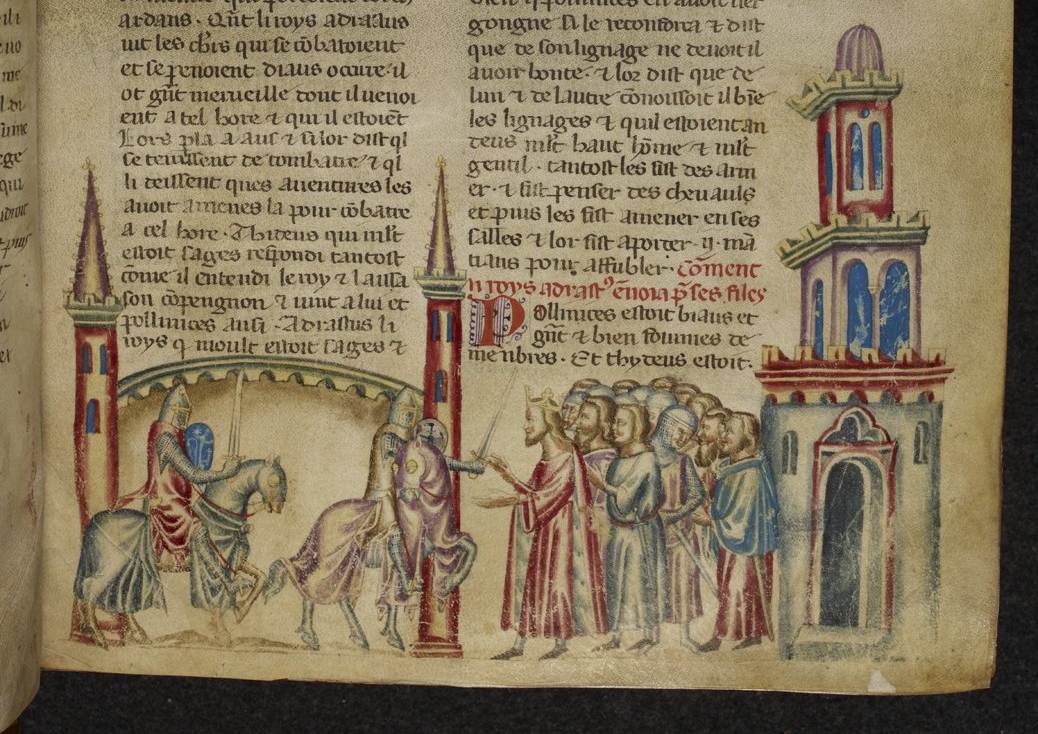 ardans. Qn̄t li roys adrastus
uit les ch͞rs qui se cōbatoient
et se penoient diaus occire. il
ot gn̄t merueille dont il uenoi
ent a tel hore ⁊ qui il estoiēt
Lors a aus ⁊ si lor dist qͥl
se tenissent de combatre ⁊ qͥl
li deissent ques auentures les
auoit amenes la pour cōbatre
a cel hore. Thideus qui ml̄t
estoit sages respondi tantost
cōme il entendi le roy ⁊ laissa
son cōpengnon ⁊ uint a lui et
pollinices ausi. Adrastus li
roys q̄ moult estoit sages ⁊
gongne Si le reconforta ⁊ dist
que de son lignage ne deuoit il
auoir honte. ⁊ lor dist que de
lun ⁊ de lautre cōnoissoit il biē
les lignages ⁊ quil estoient an
deus ml̄t haut hōme ⁊ ml̄t
gentil. tantost les fist des arm
er. ⁊ fist penser des cheuauls
et puis les fist amener en ses
salles ⁊ lor fist aporter .ij. mā
tiaus pour affubler. cōment
li roys adrastꝰ ēnora p̄ ses filles
Pollinices estoit biaus et
gn̄t ⁊ bien fourmes de
menbres. Et thydeus estoit.